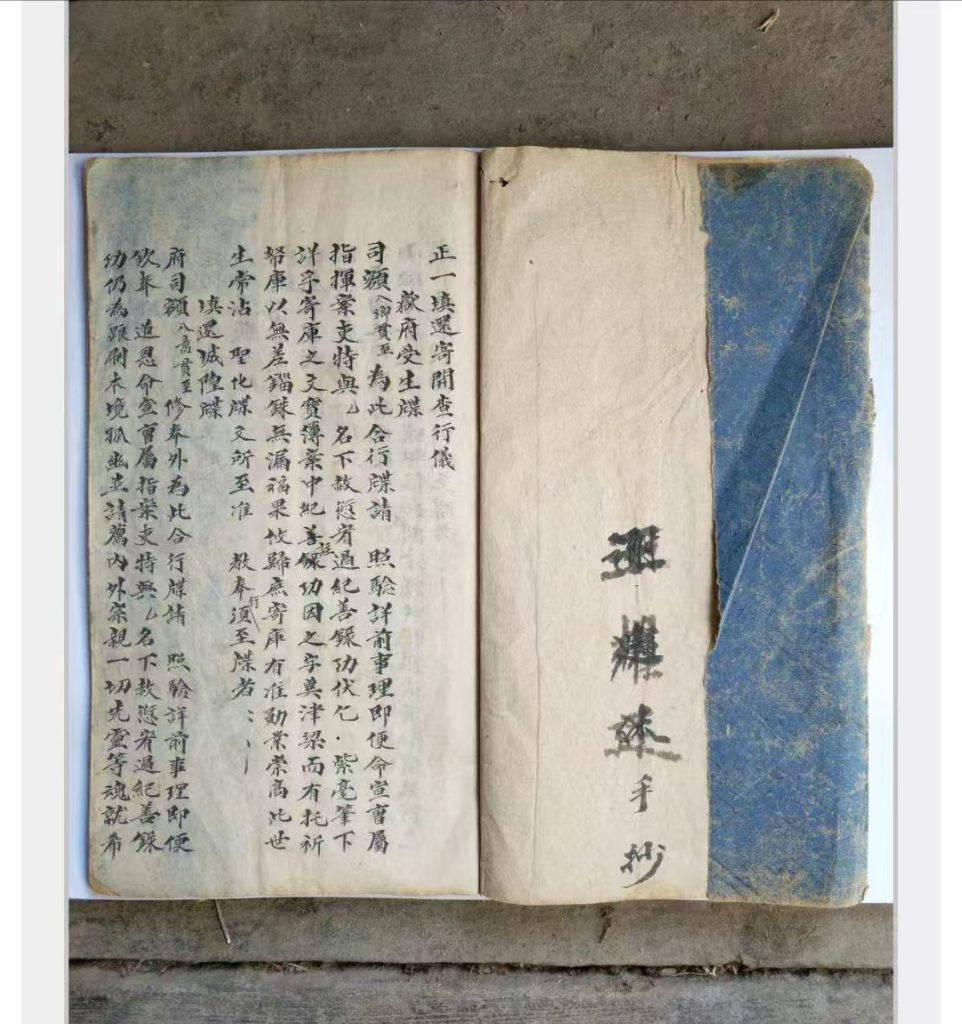 手抄
正一填還寄開查行儀
嶽府受生牒
司頒入鄉貫至為此合行牒請 照驗詳前事理即便命宣曹屬
指揮案吏特與乙名下赦愆宥過紀善錄功伏乞紫毫筆下
詳乎寄庫之文寶簿案中紀善註錄功因之字冀津梁而有托祈
帑庫以無差錙銖無漏福果攸歸庶寄庫有准勛業崇高此世
生常沾 聖化牒文所至准 教奉行須至牒者
填還城隍牒
府司頒入意貫至修奉外為此合行牒請 照驗詳前事理即便
欽奉 道恩命宣曹屬指案吏特與乙名下赦愆宥過紀善錄
功仍為跟刷本境孤幽並請薦內外宗親一切先靈等魂就希